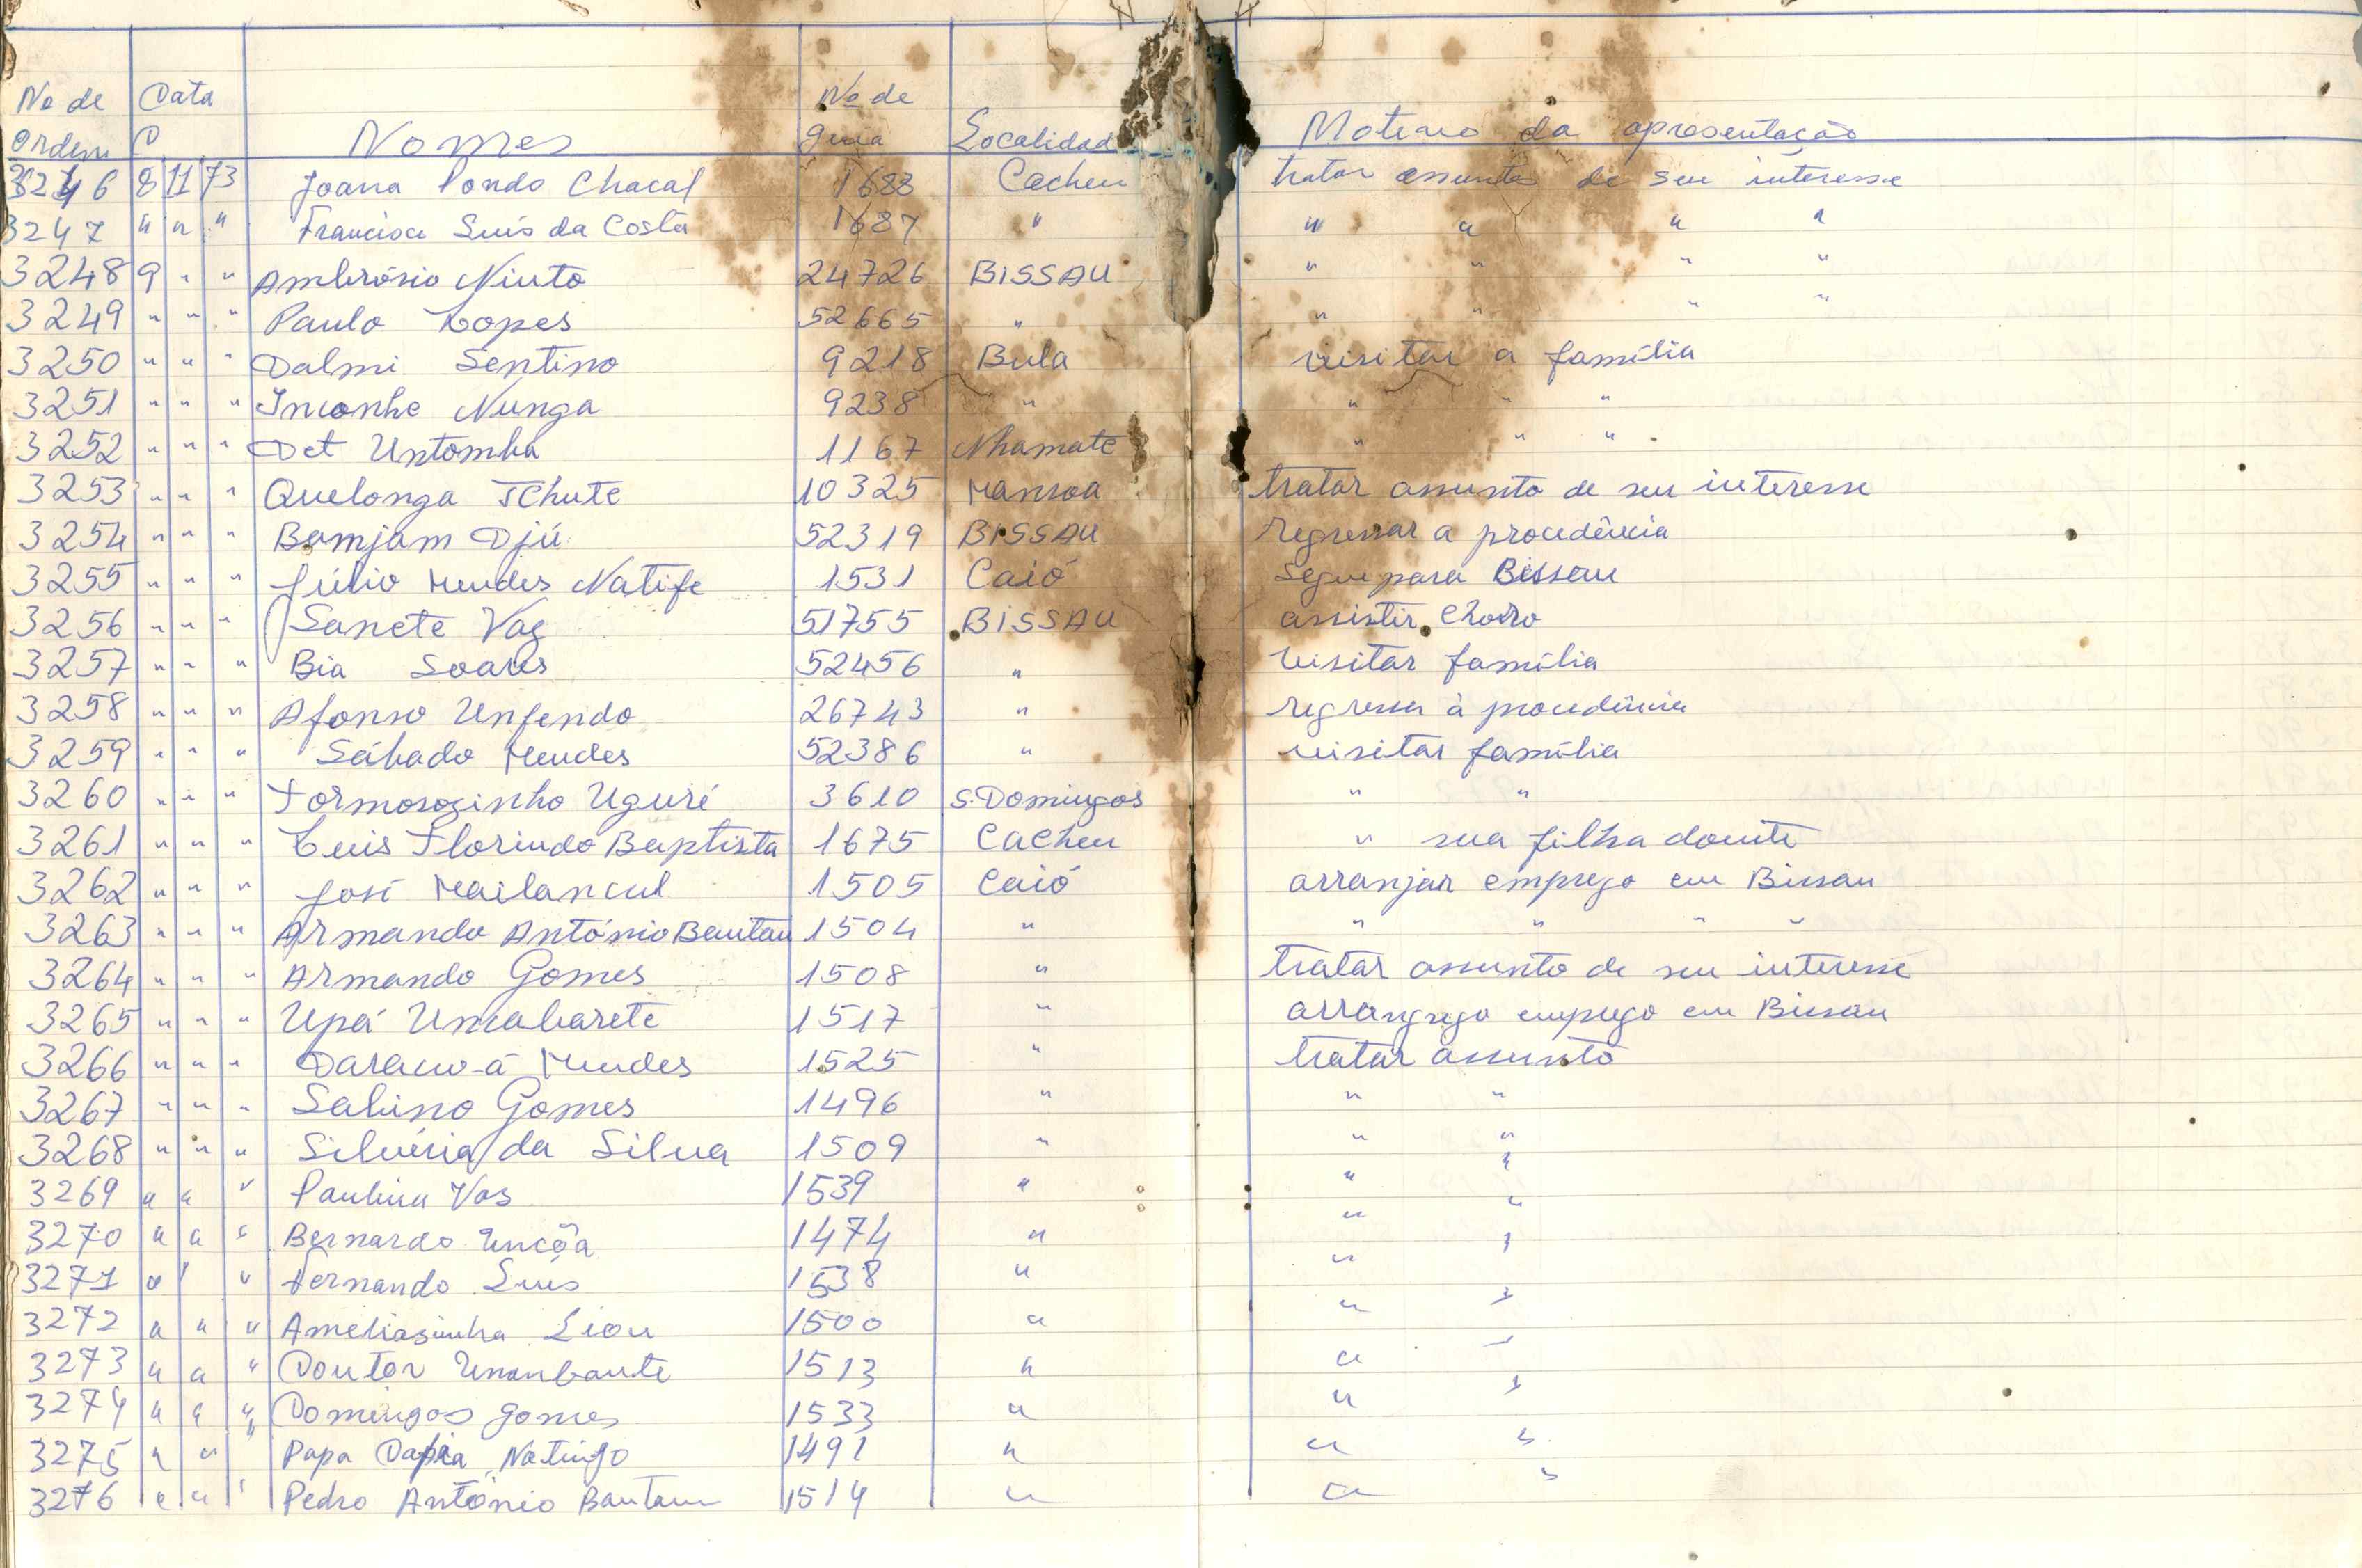 No de Data No de
Ordem D Nomes guia Localidad Motivo da apresentação
3246 8 11 73 Joana Pondo Chacal 1688 Cacheu tratar assuntos de seu interesse
3247 " " " Francisca Luís da Costa 1687 " " " " "
3248 9 " " Ambrósio Niuto 24726 BISSAU " " " "
3249 " " " Paulo Lopes 52665 " " " " "
3250 " " " Dalmi Sentino 9218 Bula visitar a família
3251 " " " Inconhe Nunga 9238 " " " "
3252 " " " Det Untomha 1167 Nhamate " " "
3253 " " " Quelonga TChute 10325 Mansoa tratar assunto de seu interesse
3254 " " " Bamjam Djú 52319 BISSAU regressar a procedência
3255 " " " Júlio Mendes Natife 1531 Caió Segue para Bissau
3256 " " " Sanete Vaz 51755 BISSAU assistir Choro
3257 " " " Bia Soares 52456 " visitar família
3258 " " " Afonso Unfendo 26743 " regressa à procedência
3259 " " " Sábado Mendes 52386 " visitar família
3260 " " " Formosozinho Uguré 3610 S. Domingos " "
3261 " " " Luis Florindo Baptista 1675 Cacheu " sua filha doente
3262 " " " José Mailancul 1505 Caió arranjar emprego em Bissau
3263 " " " Armando António Bautau 1504 " " " " "
3264 " " " Armando Gomes 1508 " tratar assunto de seu interesse
3265 " " " Upá Uncabarete 1517 " emprego em Bissau
3266 " " " Mendes 1525 " tratar assunto
3267 " " " Sabino Gomes 1496 " " "
3268 " " " Silvéria da Silva 1509 " " "
3269 " " " Paulina Vas 1539 " " "
3270 " " " Bernardo Uncôa 1474 " " "
3271 " " " Fernando Luís 1538 " " "
3272 " " " Ameliasinha Liou 1500 " " "
3273 " " " Doutor 1513 " " "
3274 " " " Domingos gomes 1533 " " "
3275 " " " Papa Natinfo 1491 " " "
3276 " " " Pedro António Bautau 1514 " " "